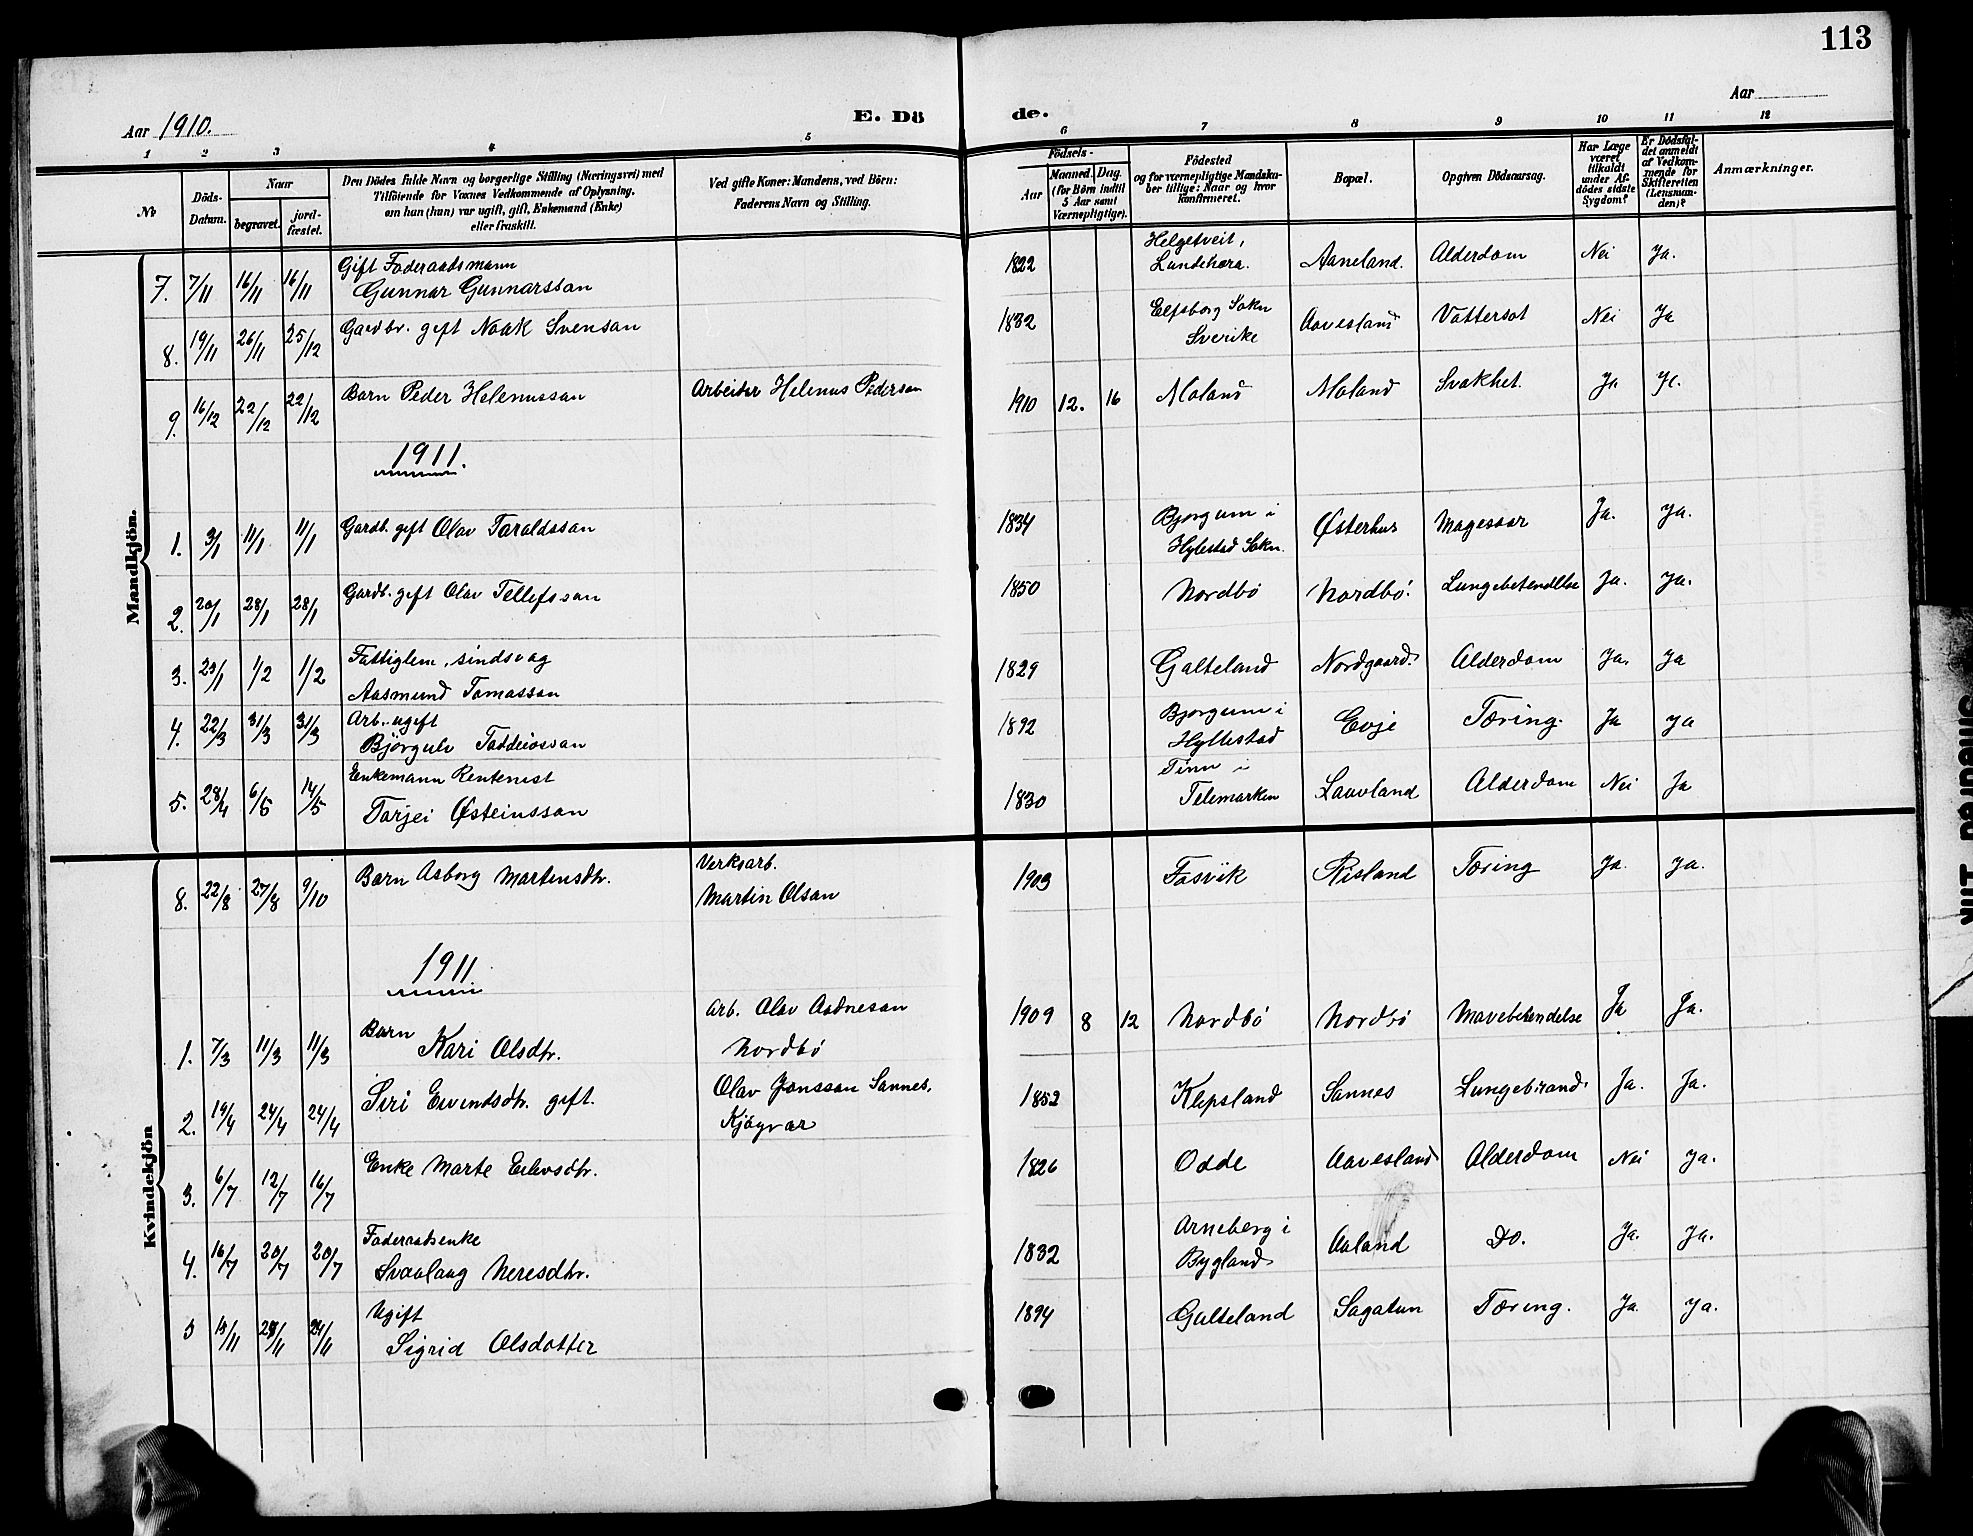 113
Aar 1910.
E. Dö
de.
Aar
1 2 3 4 5 6 7 8 9 10 11 12
No
Döds-Datum.
Naar
begravet.
jord-fæstet.
Den Dödes fulde Navn og borgerlige Stilling (Næringsvei) med
Tilföiende for Voxnes Vedkommende af Oplysning,
om han (hun) var ugift, gift, Enkemand (Enke)
eller fraskilt.
Ved gifte Koner: Mandens, ved Börn:
Faderens Navn og Stilling.
Födsels-
Aar
Maaned. Dag.
(for Börn indtil
5 Aar samt
Værnepligtige).
Födested
og for værnepligtige Mandska-
ber tillige: Naar og hvor
konfirmeret.
Bopæl.
Opgiven Dödsaarsag.
Har Læge
været
tilkaldt
under Af-
dödes sidste
Sygdom?
Er Dödsfal-
det anmeldt
af Vedkom-
mende for
Skifteretten
(Lensman-
den)?
Anmærkninger.
Mandkjön.
Gift Foderaadsmann Helgetveit,
7. 7/11 16/11 16/11 Gunnar Gunnarsson 1822 Lundehæra. Aaneland. Alderdom Nei Ja.
8. 19/11 26/11 25/12 Gardbr. gift Noak Svenson 1832 Elfsborg Sokn Aavesland Vattersot Nei Ja
Sverike
9. 16/12 22/12 22/12 Barn Peder Helenusson Arbeider Helenus Pederson 1910 12. 16 Moland Moland Svakhet. Ja Ja.
1911.
1. 3/1 11/1 11/1 Gardb. gift Olav Taraldsson 1834 Bjorgum i Østerhus Magesaar Ja. Ja.
Hylestad Sokn.
2. 20/1 28/1 28/1 Gardb. gift Olav Tellefsson 1850 Nordbö Nordbö. Lungebetendelse Ja. Ja.
3. 23/1 1/2 1/2 Fattiglem, sindsvag 1829 Galteland Nordgaard. Alderdom Ja. Ja
Aasmund Tomasson
4. 22/3 31/3 31/3 Arb. ugift 1892 Bjorgum i Evje Tæring. Ja Ja
Bjørgulv Taddeiosson Hyllestad
5. 28/4 6/5 14/5 Enkemann Rentenist 1830 Tinn i Laavland Alderdom Nei Ja
Tarjei Østeinsson Telemarken
Kvindekjön
8. 22/8 27/8 9/10 Barn Asborg Martensdtr. Verksarb. 1903 Fosvik Risland Tæring Ja. Ja.
Martin Olson
1911
1. 7/3 11/3 11/3 Barn Arb. Olav Aadneson 1909 8 12 Nordbö Nordbö Mavebetendelse Ja. Ja.
Kari Olsdtr. Nordbö
2. 19/4 24/4 24/4 Siri Eivindsdtr. gift. Olav Jonsson Sannes, 1852 Klepsland Sannes Lungebrand. Ja. Ja.
Kjøgvar
3. 6/7 12/7 16/7 Enke Marte Eilevsdtr. 1826 Odde Aavesland Alderdom Nei Ja.
4. 16/7 20/7 20/7 Foderaadsenke 1832 Arneberg i Aaland Do. Ja. Ja.
Svaalaug Neresdtr. Bygland
5 15/11 29/11 29/11 Ugift 1894 Galteland Sagatun Tæring. Ja. Ja.
Sigrid Olsdotter